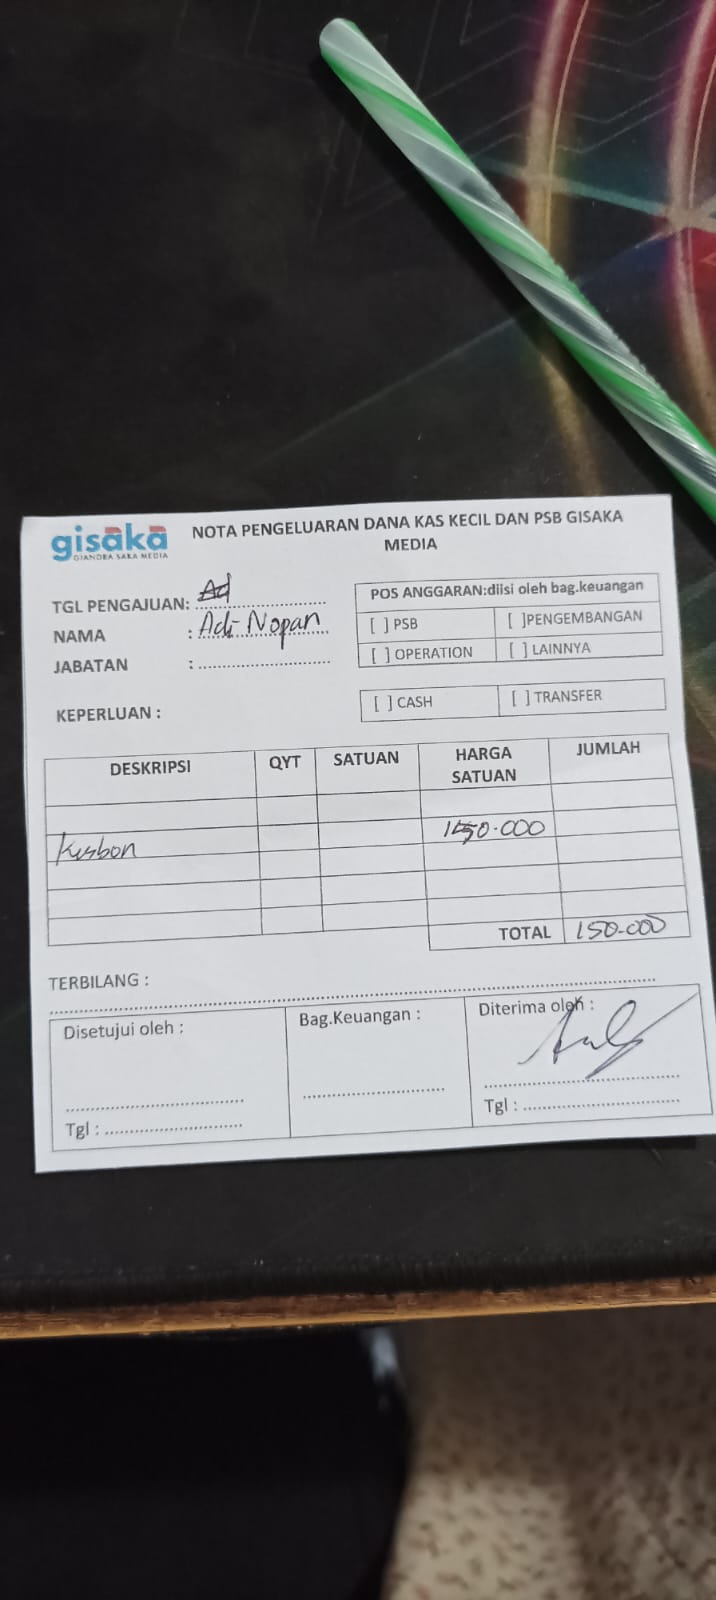 gisaka
GIANDRA SAKA MEDIA
NOTA PENGELUARAN DANA KAS KECIL DAN PSB GISAKA
MEDIA
TGL PENGAJUAN:
NAMA : Adi Nopan
JABATAN :
POS ANGGARAN:diisi oleh bag.keuangan
[ ] PSB [ ]PENGEMBANGAN
[ ] OPERATION [ ] LAINNYA
KEPERLUAN :
[ ] CASH [ ] TRANSFER
DESKRIPSI QYT SATUAN HARGA SATUAN JUMLAH
Kasbon 150.000
TOTAL 150.000
TERBILANG :
Disetujui oleh : Bag.Keuangan : Diterima oleh :
Tgl : Tgl :